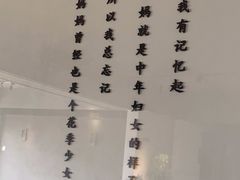 我有记忆起
妈就是中年妇女的样
所以我总忘记
妈妈曾经也是个花季少女